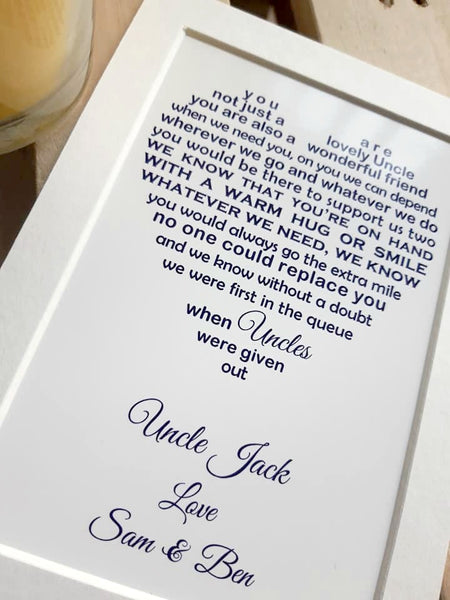 you are
not just a lovely Uncle
you are also a wonderful friend
when we need you, on you we can depend
wherever we go and whatever we do
you would be there to support us two
WE KNOW THAT YOU'RE ON HAND
WITH A WARM HUG OR SMILE
WHATEVER WE NEED, WE KNOW
you would always go the extra mile
no one could replace you
and we know without a doubt
we were first in the queue
when Uncles
were given
out
Uncle Jack
Love
Sam & Ben